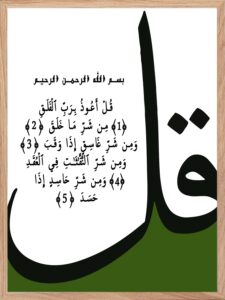 بسم الله الرحمن الرحيم
قُلْ أَعُوذُ بِرَبِّ ٱلْفَلَقِ
﴿1﴾ مِن شَرِّ مَا خَلَقَ ﴿2﴾
وَمِن شَرِّ غَاسِقٍ إِذَا وَقَبَ ﴿3﴾
وَمِن شَرِّ ٱلنَّفَّٰثَٰتِ فِي ٱلْعُقَدِ
﴿4﴾ وَمِن شَرِّ حَاسِدٍ إِذَا
حَسَدَ ﴿5﴾
قل